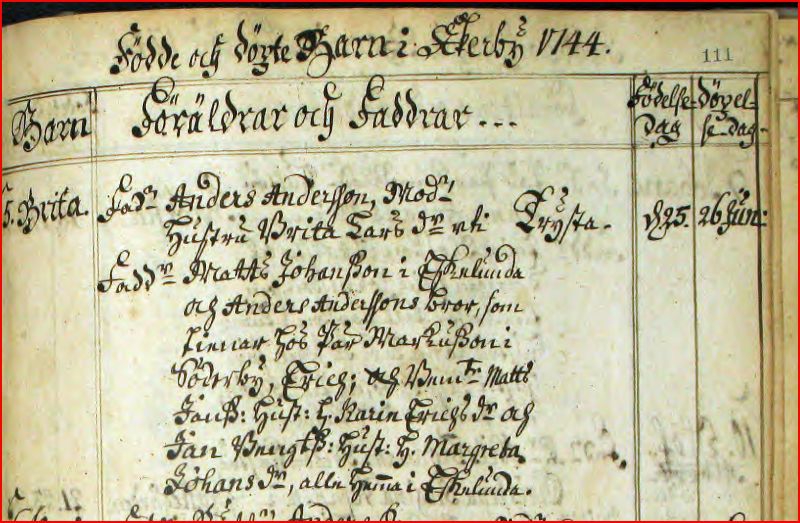 Födde och döpte Barn i Åkerby 1744.
111
Barn
Föräldrar och Faddrar...
Födelse-
dag
döpel-
se-dag.
5. Brita.
Fadr Anders Andersson, Modr
Hustru Brita Lars dr uti Krysta.
d. 25.
26 Jun:
Faddr Matts Johansson i Eskelunda
och Anders Anderssons bror, som
tienar hos Pär Markusson i
Söderby, Erich; och Matts
Janss: Hust: h. Karin Erichs dr och
Jan Bengtss: Hust: h. Margreta
Johans dr, alle hema i Eskelunda.